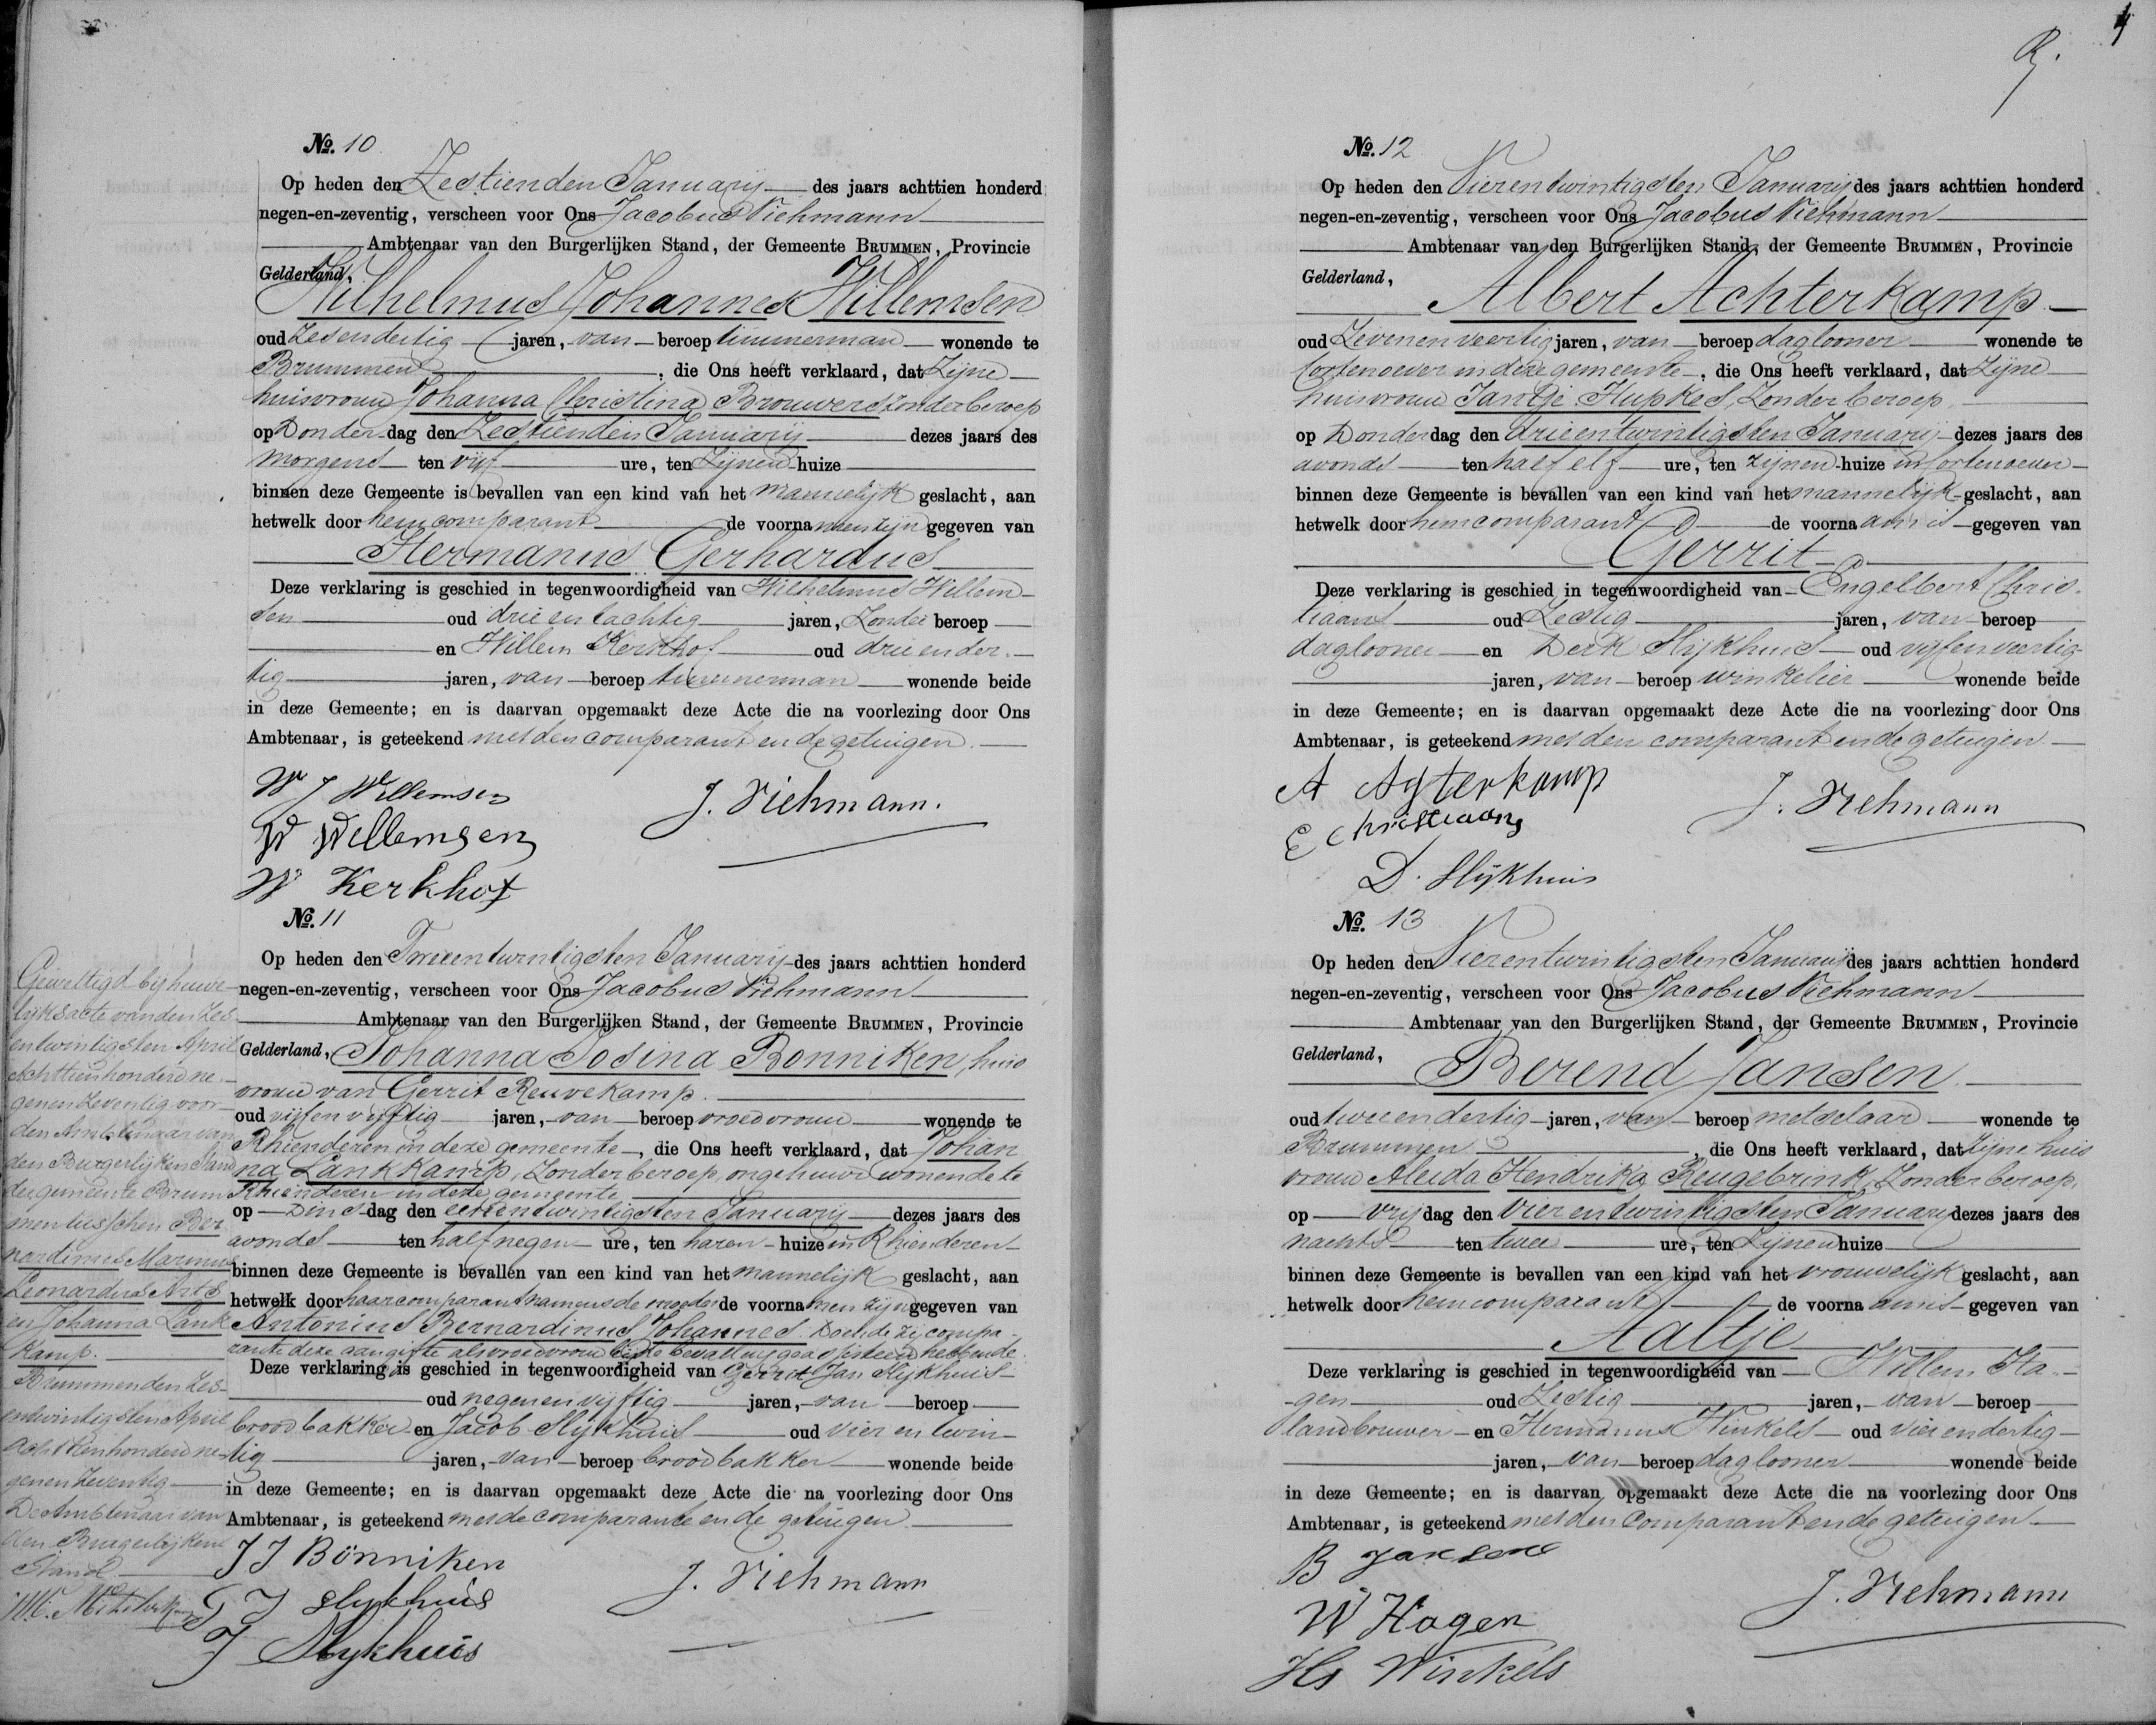 No. 10
Op heden den Zestienden Januarij des jaars achttien honderd
negen-en-zeventig, verscheen voor Ons Jacobus Viehmann
Ambtenaar van den Burgerlijken Stand, der Gemeente BRUMMEN, Provincie
Gelderland,
Wilhelmus Johannes Willemsen
oud Zesendertig jaren, van beroep timmerman wonende te
Brummen, die Ons heeft verklaard, dat Zijne
huisvrouw Johanna Christina Brouwers Zonder beroep
op Donderdag den Zestienden Januarij dezes jaars des
morgens ten vijf ure, ten Zijnen huize
binnen deze Gemeente is bevallen van een kind van het mannelijk geslacht, aan
hetwelk door hem comparant de voornamen zijn gegeven van
Hermanus Gerhardus
Deze verklaring is geschied in tegenwoordigheid van Wilhelmus Willem-
sen oud drieentachtig jaren, Zonder beroep
en Willem Kerkhof oud drieender-
tig jaren, van beroep timmerman wonende beide
in deze Gemeente; en is daarvan opgemaakt deze Acte die na voorlezing door Ons
Ambtenaar, is geteekend met den comparant en de getuigen.
W J Willemsen
J. Viehmann.
W Willemsen
W Kerkhof
No. 11
Op heden den Tweeentwintigsten Januarij des jaars achttien honderd
negen-en-zeventig, verscheen voor Ons Jacobus Viehmann
Ambtenaar van den Burgerlijken Stand, der Gemeente BRUMMEN, Provincie
Gelderland, Johanna Josina Bonniken, huis
vrouw van Gerrit Reuvekamp.
oud vijfenvijftig jaren, van beroep vroedvrouw wonende te
Rhienderen in deze gemeente, die Ons heeft verklaard, dat Johan
na Lankkamp, Zonder beroep, ongehuwd wonende te
Rhienderen in deze gemeente
op Dinsdag den eenentwintigsten Januarij dezes jaars des
avonds ten half negen ure, ten haren huize in Rhienderen
binnen deze Gemeente is bevallen van een kind van het mannelijk geslacht, aan
hetwelk door haar comparant namens de moeder de voornamen zijn gegeven van
Antonius Bernardinus Johannes. Doende zij compa-
rante deze aangifte als vroedvrouw bij de bevalling geassisteerd hebbende
Deze verklaring is geschied in tegenwoordigheid van Gerrit Jan Slijkhuis
oud negenenvijftig jaren, van beroep
broodbakker en Jacob Slijkhuis oud vier en twin-
tig jaren, van beroep broodbakker wonende beide
in deze Gemeente; en is daarvan opgemaakt deze Acte die na voorlezing door Ons
Ambtenaar, is geteekend met de comparante en de getuigen
J J Bönniken
J. Viehmann
G J Slykhuis
J Slykhuis
Gewettigd bij huwe-
lijksacte van den Zes
entwintigsten April
Achttienhonderd ne-
genenzeventig voor
den Ambtenaar van
den Burgerlijken Stand
der gemeente Brum
men tusschen Ber
nardinus Marinus
Leonardus Arts
en Johanna Lank
kamp.
Brummen den Zes-
entwintigsten April
achttienhonderd ne-
genenzeventig
De Ambtenaar van
den Burgerlijken
Stand
R.
4
No. 12
Op heden den Vierentwintigsten Januarij des jaars achttien honderd
negen-en-zeventig, verscheen voor Ons Jacobus Viehmann
Ambtenaar van den Burgerlijken Stand, der Gemeente BRUMMEN, Provincie
Gelderland,
Albert Achterkamp
oud Zevenenveertig jaren, van beroep daglooner wonende te
Cortenoever in deze gemeente, die Ons heeft verklaard, dat Zijne
huisvrouw Jantje Hupkes, Zonder beroep,
op Donderdag den drieentwintigsten Januarij dezes jaars des
avonds ten half elf ure, ten zijnen huize in Cortenoever
binnen deze Gemeente is bevallen van een kind van het mannelijk geslacht, aan
hetwelk door hem comparant de voornaam is gegeven van
Gerrit
Deze verklaring is geschied in tegenwoordigheid van Engelbert Chris-
tiaans oud Zestig jaren, van beroep
daglooner en Derk Slijkhuis oud vijfenveertig
jaren, van beroep winkelier wonende beide
in deze Gemeente; en is daarvan opgemaakt deze Acte die na voorlezing door Ons
Ambtenaar, is geteekend met den comparant en de getuigen
A Agterkamp
J. Viehmann
E Christiaans
D. Slijkhuis
No. 13
Op heden den Vierentwintigsten Januarij des jaars achttien honderd
negen-en-zeventig, verscheen voor Ons Jacobus Viehmann
Ambtenaar van den Burgerlijken Stand, der Gemeente BRUMMEN, Provincie
Gelderland,
Berend Jansen
oud tweeendertig jaren, van beroep metselaar wonende te
Brummen, die Ons heeft verklaard, dat Zijne huis
vrouw Aleida Hendrika Reugebrink, Zonder beroep,
op vrijdag den vier entwintigsten Januarij dezes jaars des
nachts ten twee ure, ten Zijnen huize
binnen deze Gemeente is bevallen van een kind van het vrouwelijk geslacht, aan
hetwelk door hem comparant de voornaam is gegeven van
Aaltje
Deze verklaring is geschied in tegenwoordigheid van Willem Ha-
gen oud Zestig jaren, van beroep
landbouwer en Hermanus Winkels oud vierendertig
jaren, van beroep daglooner wonende beide
in deze Gemeente; en is daarvan opgemaakt deze Acte die na voorlezing door Ons
Ambtenaar, is geteekend met den comparant en de getuigen
B Jansen
J. Viehmann
W Hagen
Hs Winkels